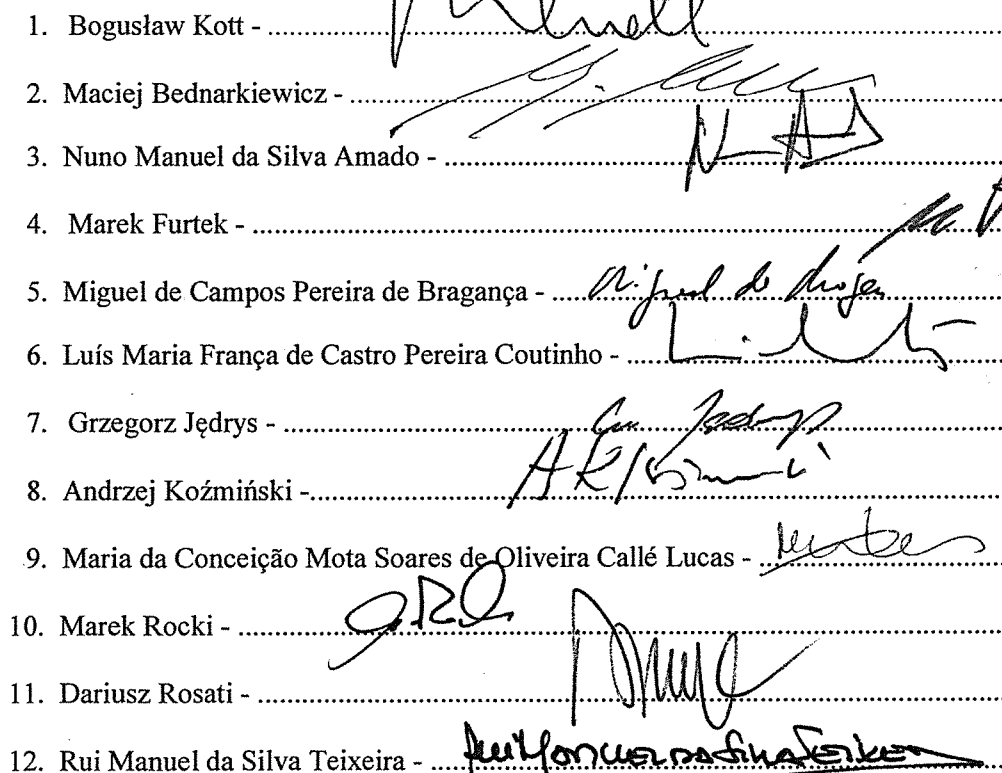 1. Bogusław Kott - ....................
2. Maciej Bednarkiewicz - ....................
3. Nuno Manuel da Silva Amado - ....................
4. Marek Furtek - ....................
5. Miguel de Campos Pereira de Bragança - .... Miguel de
6. Luís Maria França de Castro Pereira Coutinho - ....................
7. Grzegorz Jędrys - .................... Jędrys
8. Andrzej Koźmiński -....................
9. Maria da Conceição Mota Soares de Oliveira Callé Lucas - ....................
10. Marek Rocki - ....................
11. Dariusz Rosati - ....................
12. Rui Manuel da Silva Teixeira - .... Rui Manuel da Silva Teixeira